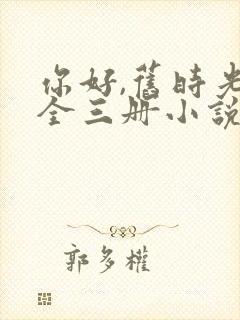 你好,舊時光
全三册小說
郭多權